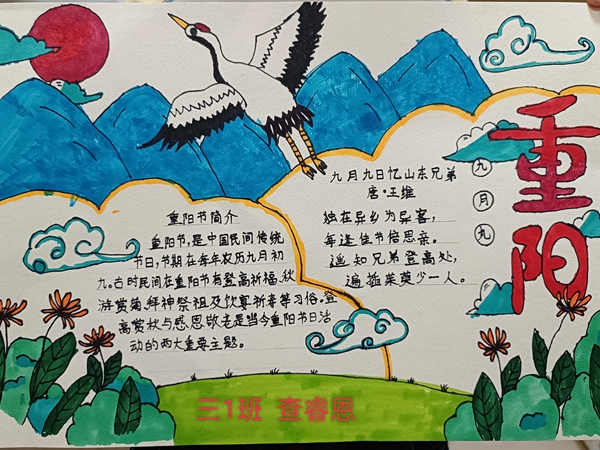 重阳
九月九
重阳节简介
重阳节,是中国民间传统
节日,节期在每年农历九月初
九。古时民间在重阳节有登高祈福、秋
游赏菊、拜神祭祖及饮宴祈寿等习俗。登
高赏秋与感恩敬老是当今重阳节日活
动的两大重要主题。
九月九日忆山东兄弟
唐·王维
独在异乡为异客,
每逢佳节倍思亲。
遥知兄弟登高处,
遍插茱萸少一人。
三1班 查睿恩